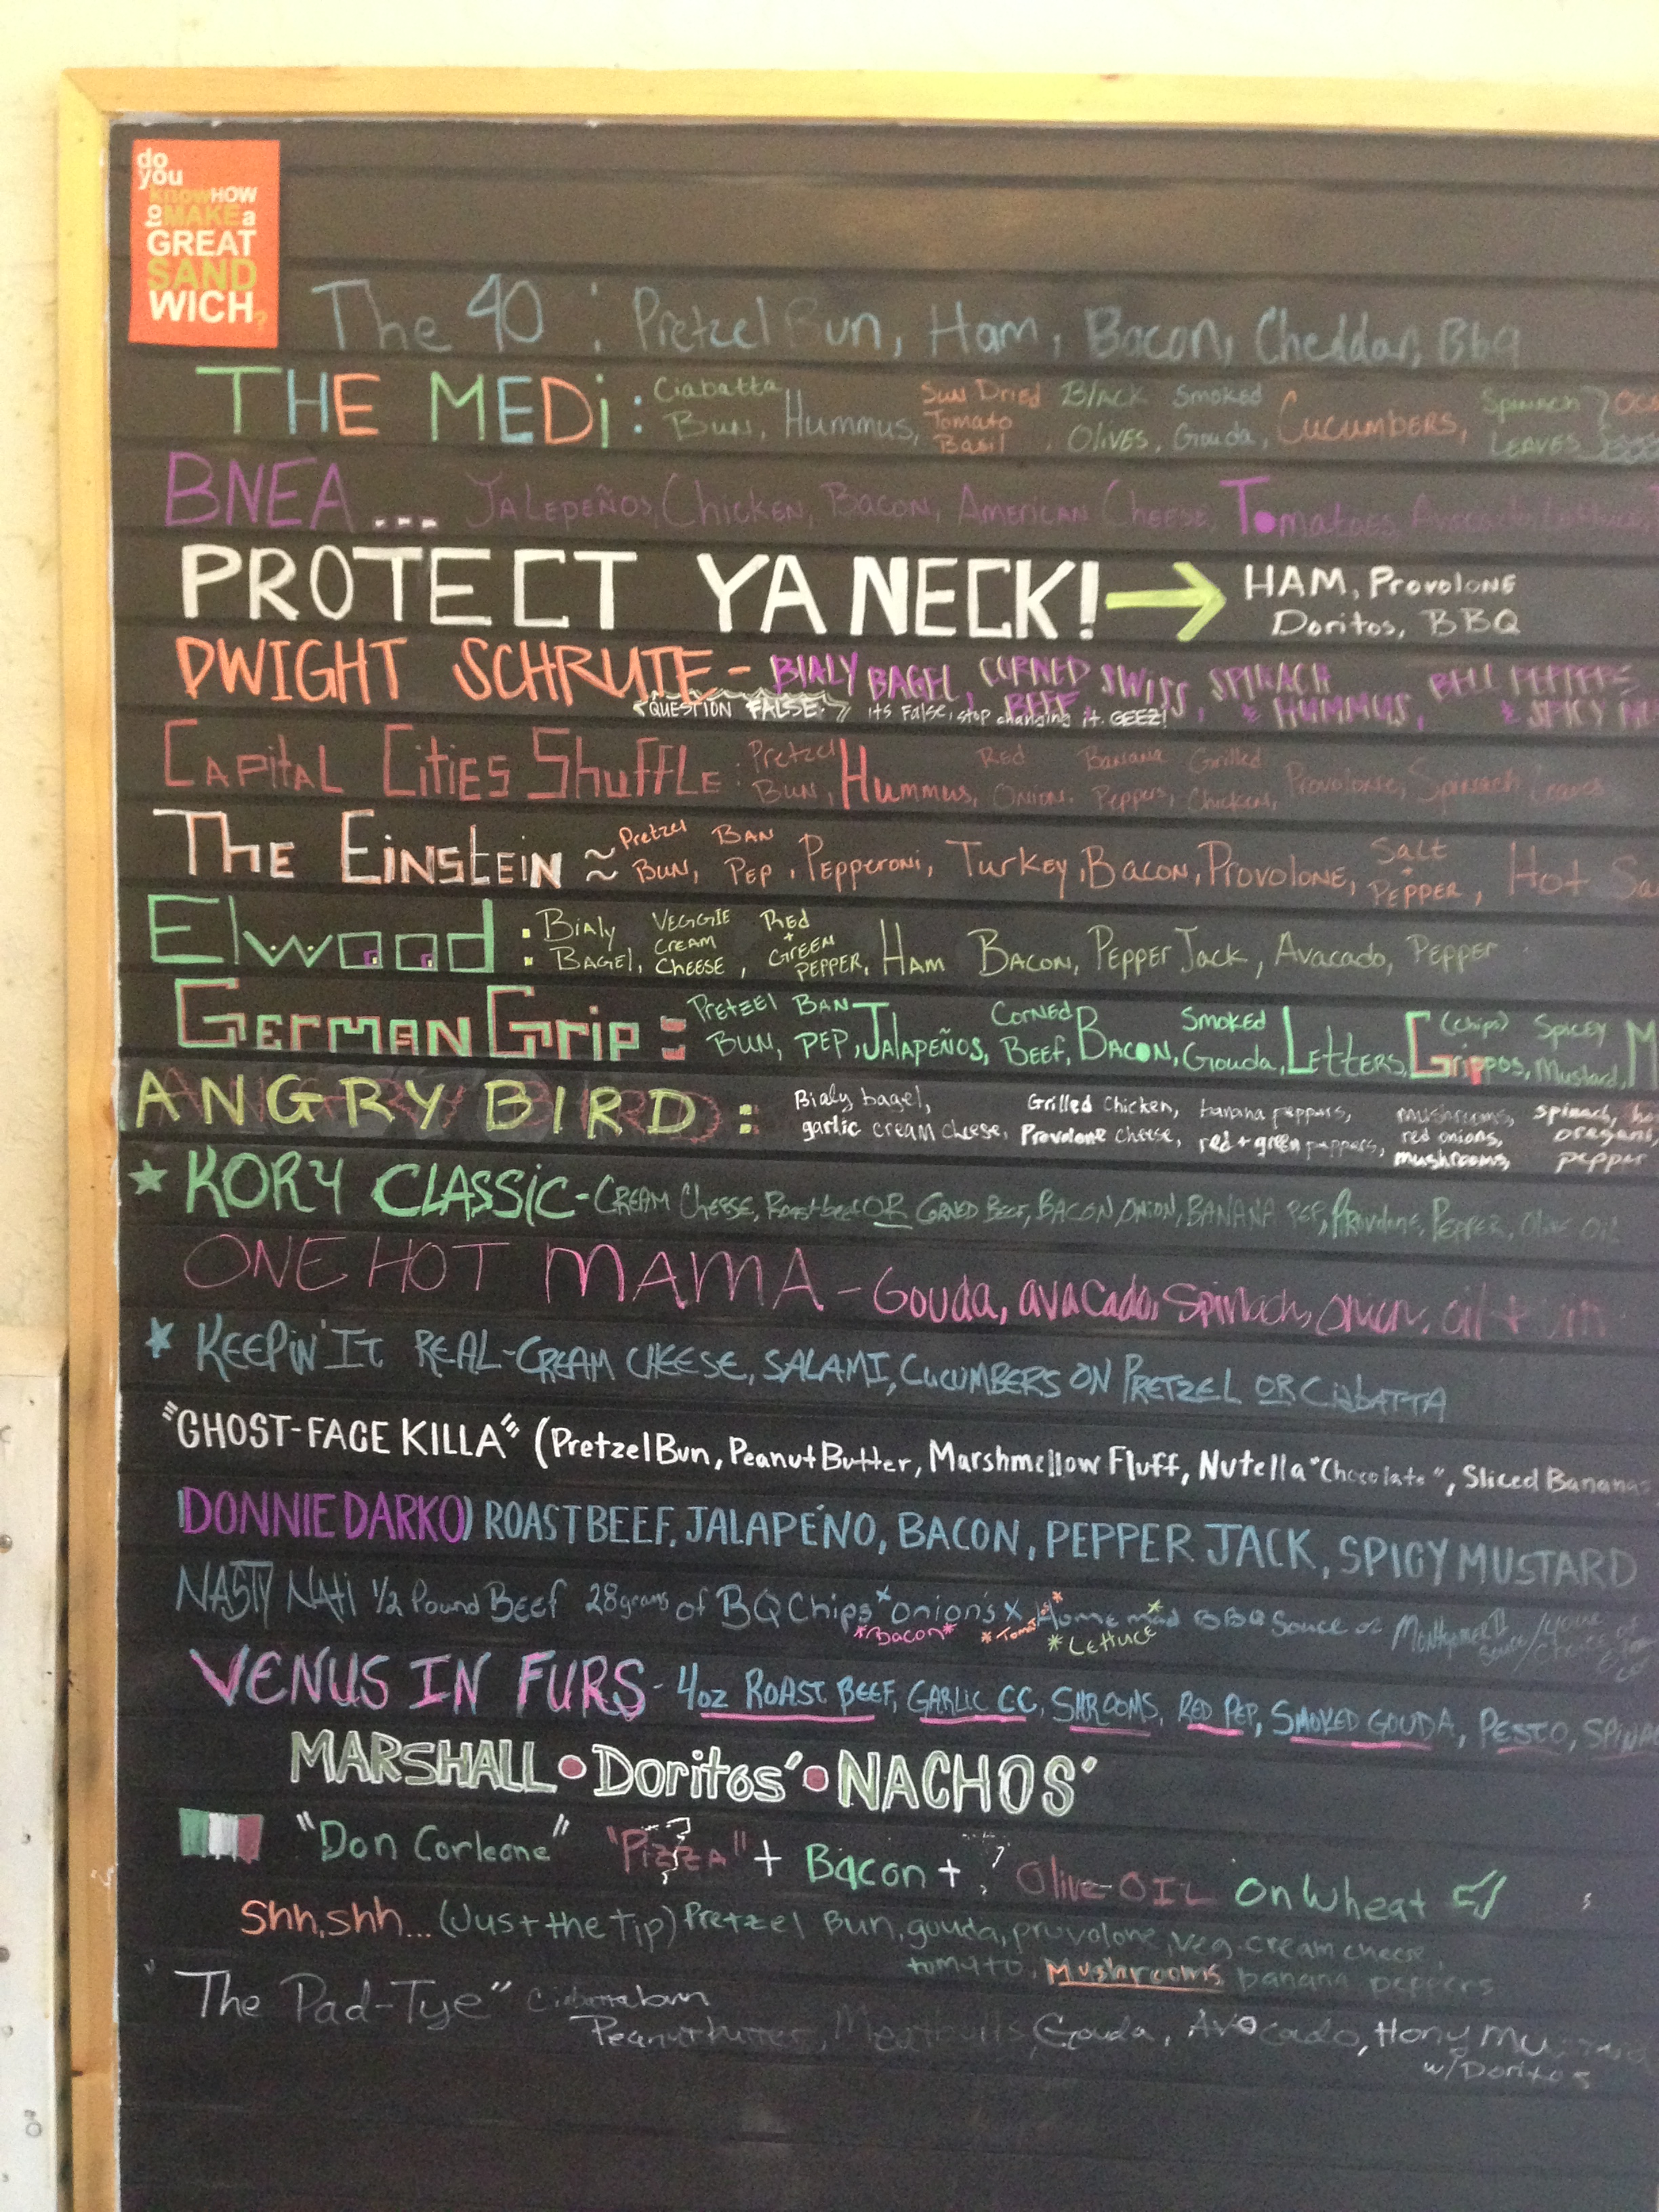 do
you
knowHOW
to MAKE a
GREAT
SAND
WICH?
The 40 : Pretzel Bun, Ham, Bacon, Cheddar, Bbq
THE MEDi : Ciabatta Bun, Hummus, Sun Dried Tomato Basil, Black Olives, Smoked Gouda, Cucumbers, Spinach Leaves
BNEA... Jalepeños, Chicken, Bacon, American Cheese, Tomatoes, Avacado, Lettuce,
PROTECT YA NECK! → HAM, Provolone
Doritos, BBQ
DWIGHT SCHRUTE - BIALY BAGEL, CORNED BEEF, SWISS, SPINACH & HUMMUS, BELL PEPPERS & SPICY
QUESTION FALSE. its False, stop changing it. GEEZ!
Capital Cities Shuffle : Pretzel Bun, Hummus, Red Onion, Banana Peppers, Grilled Chicken, Provolone, Spinach Leaves
The Einstein ≈ Pretzel Bun, Ban Pep, Pepperoni, Turkey, Bacon, Provolone, Salt + Pepper, Hot
Elwood : Bialy Bagel, Veggie Cream Cheese, Red + Green Pepper, Ham Bacon, Pepper Jack, Avacado, Pepper
German Grip : Pretzel Bun, Ban Pep, Jalapeños, Corned Beef, Bacon, Smoked Gouda, Letters, Grippos, (chips) Spicey Mustard, M
ANGRY BIRD : Bialy bagel, Grilled Chicken, banana peppers, mushrooms, spinach,
garlic cream cheese, Provolone cheese, red + green peppers, red onions, oregano,
mushrooms, pepper
★ KORY CLASSIC - Cream Cheese, Roast beef OR Corned Beef, Bacon, Onion, Banana Pep, Provolone, Pepper, Olive Oil
ONE HOT MAMA - Gouda, avacado, Spinach, onion, oil +
★ KEEPIN' IT REAL - CREAM CHEESE, SALAMI, CUCUMBERS ON PRETZEL OR CIABATTA
"GHOST-FACE KILLA" (Pretzel Bun, Peanut Butter, Marshmellow Fluff, Nutella "Chocolate", Sliced Bananas
(DONNIE DARKO) ROAST BEEF, JALAPEÑO, BACON, PEPPER JACK, SPICY MUSTARD
NASTY NATI 1/2 Pound Beef 28grams of BQ Chips * onion's x Home mad BBQ Souce or
*Bacon* *Tomatos* *Lettuce*
VENUS IN FURS - 4oz ROAST BEEF, GARLIC CC, SHROOMS, RED PEP, SMOKED GOUDA, PESTO,
MARSHALL • Doritos' • NACHOS'
"Don Corleone" "Pizza" + Bacon + Olive OIL On Wheat
Shh, shh... (Just the Tip) Pretzel Bun, gouda, provolone, veg. cream cheese,
tomato, Mushrooms banana peppers
"The Pad-Tye" Ciabatta bun
Peanut butter, Meatballs, Gouda, Avocado, Hony
w/Doritos